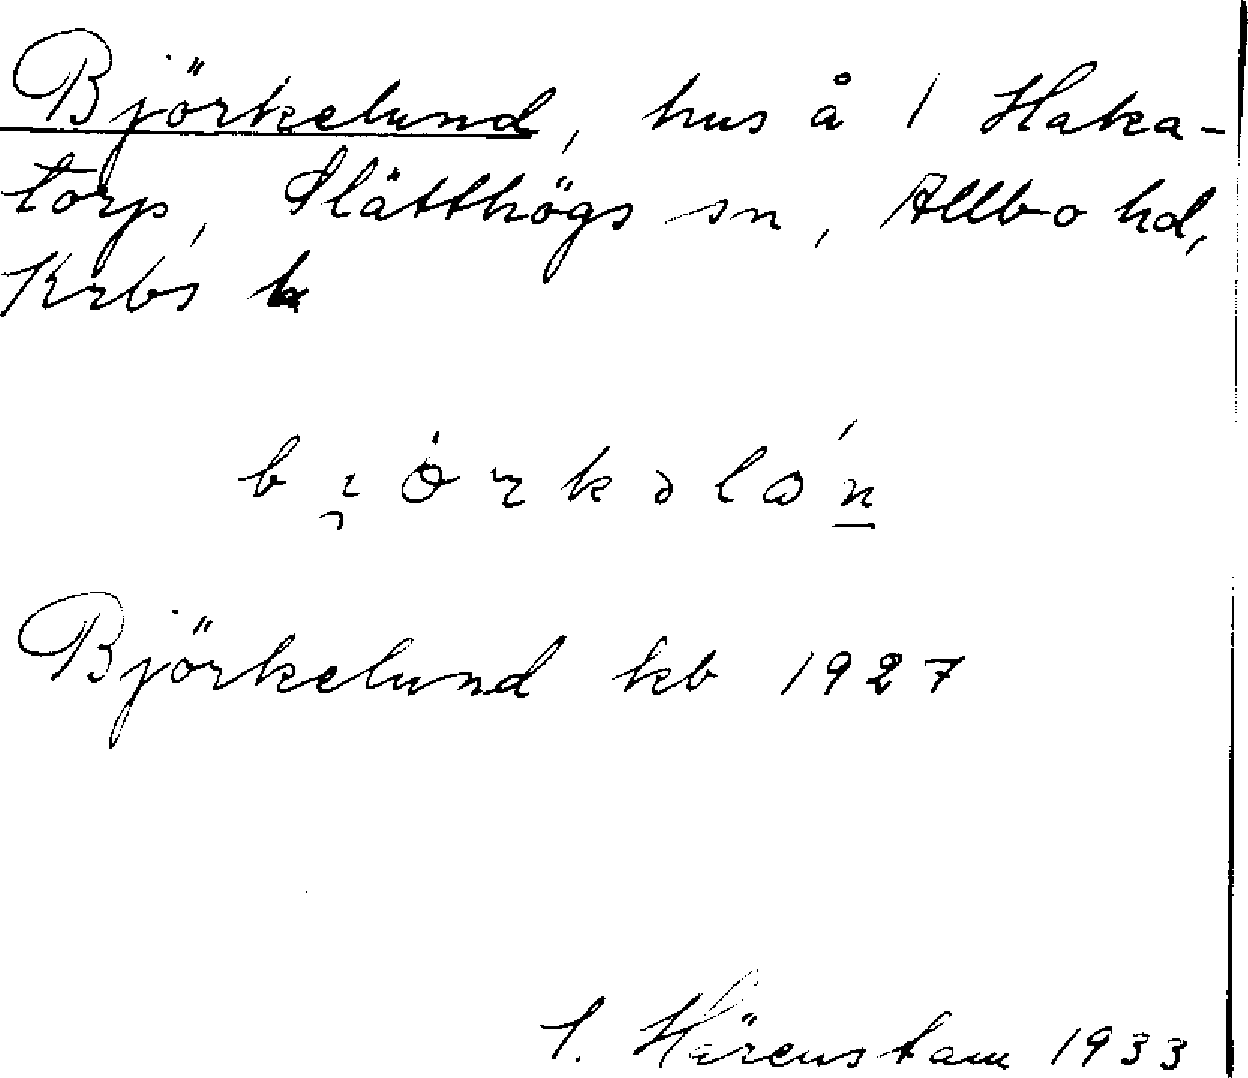 Björkelund, hus å 1 Haka-
torp, Slätthögs sn, Allbo hd,
Krbs
Björkelund kb 1927
Härenstam 1933